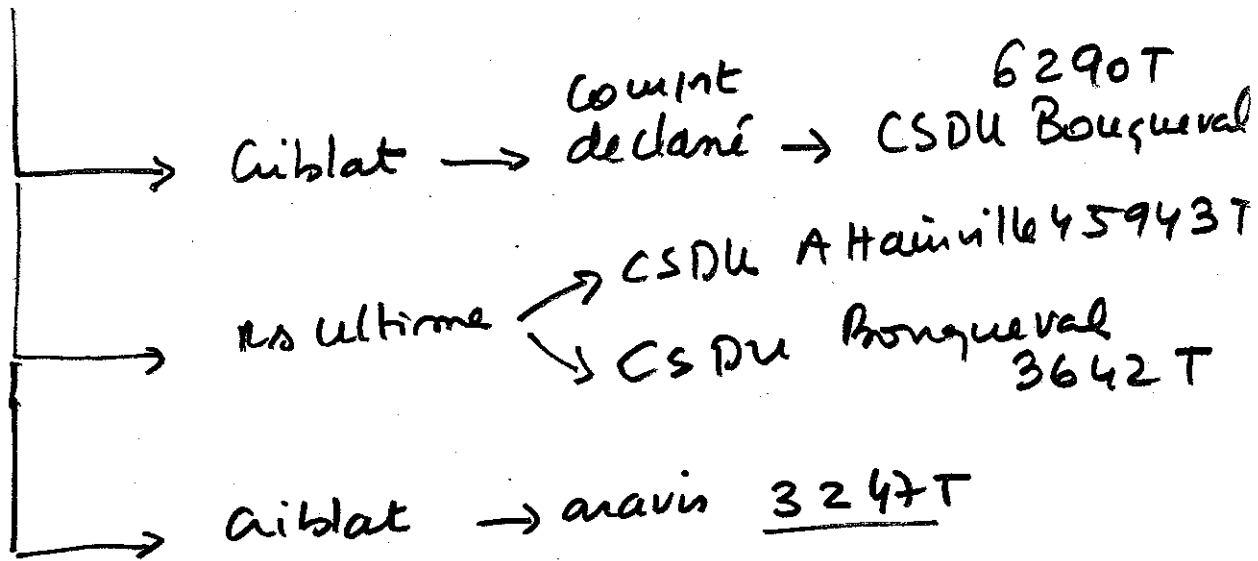 Criblat → Compost déclaré → CSDU Bouqueval 6290T
rs ultime → CSDU Attainville 45943T
→ CSDU Bouqueval 3642T
Criblat → gravis 3247T